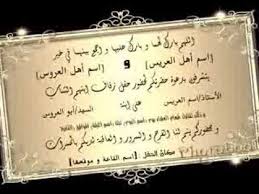 اللهم بارك لهما و بارك عليهما و اجمع بينهما في خير
[اسم أهل العريس] و [اسم أهل العروس]
يتشرفون بدعوة حضرتكم لحضور حفل زفاف ابنهم الشاب
الأستاذ/اسم العريس على ابنة السيد/أبو العروس
وبحضوركم يتم لنا الفرح و السرور و العاقبة لديكم بالمسرات
مكان الحفل [اسم القاعة و موقعها]